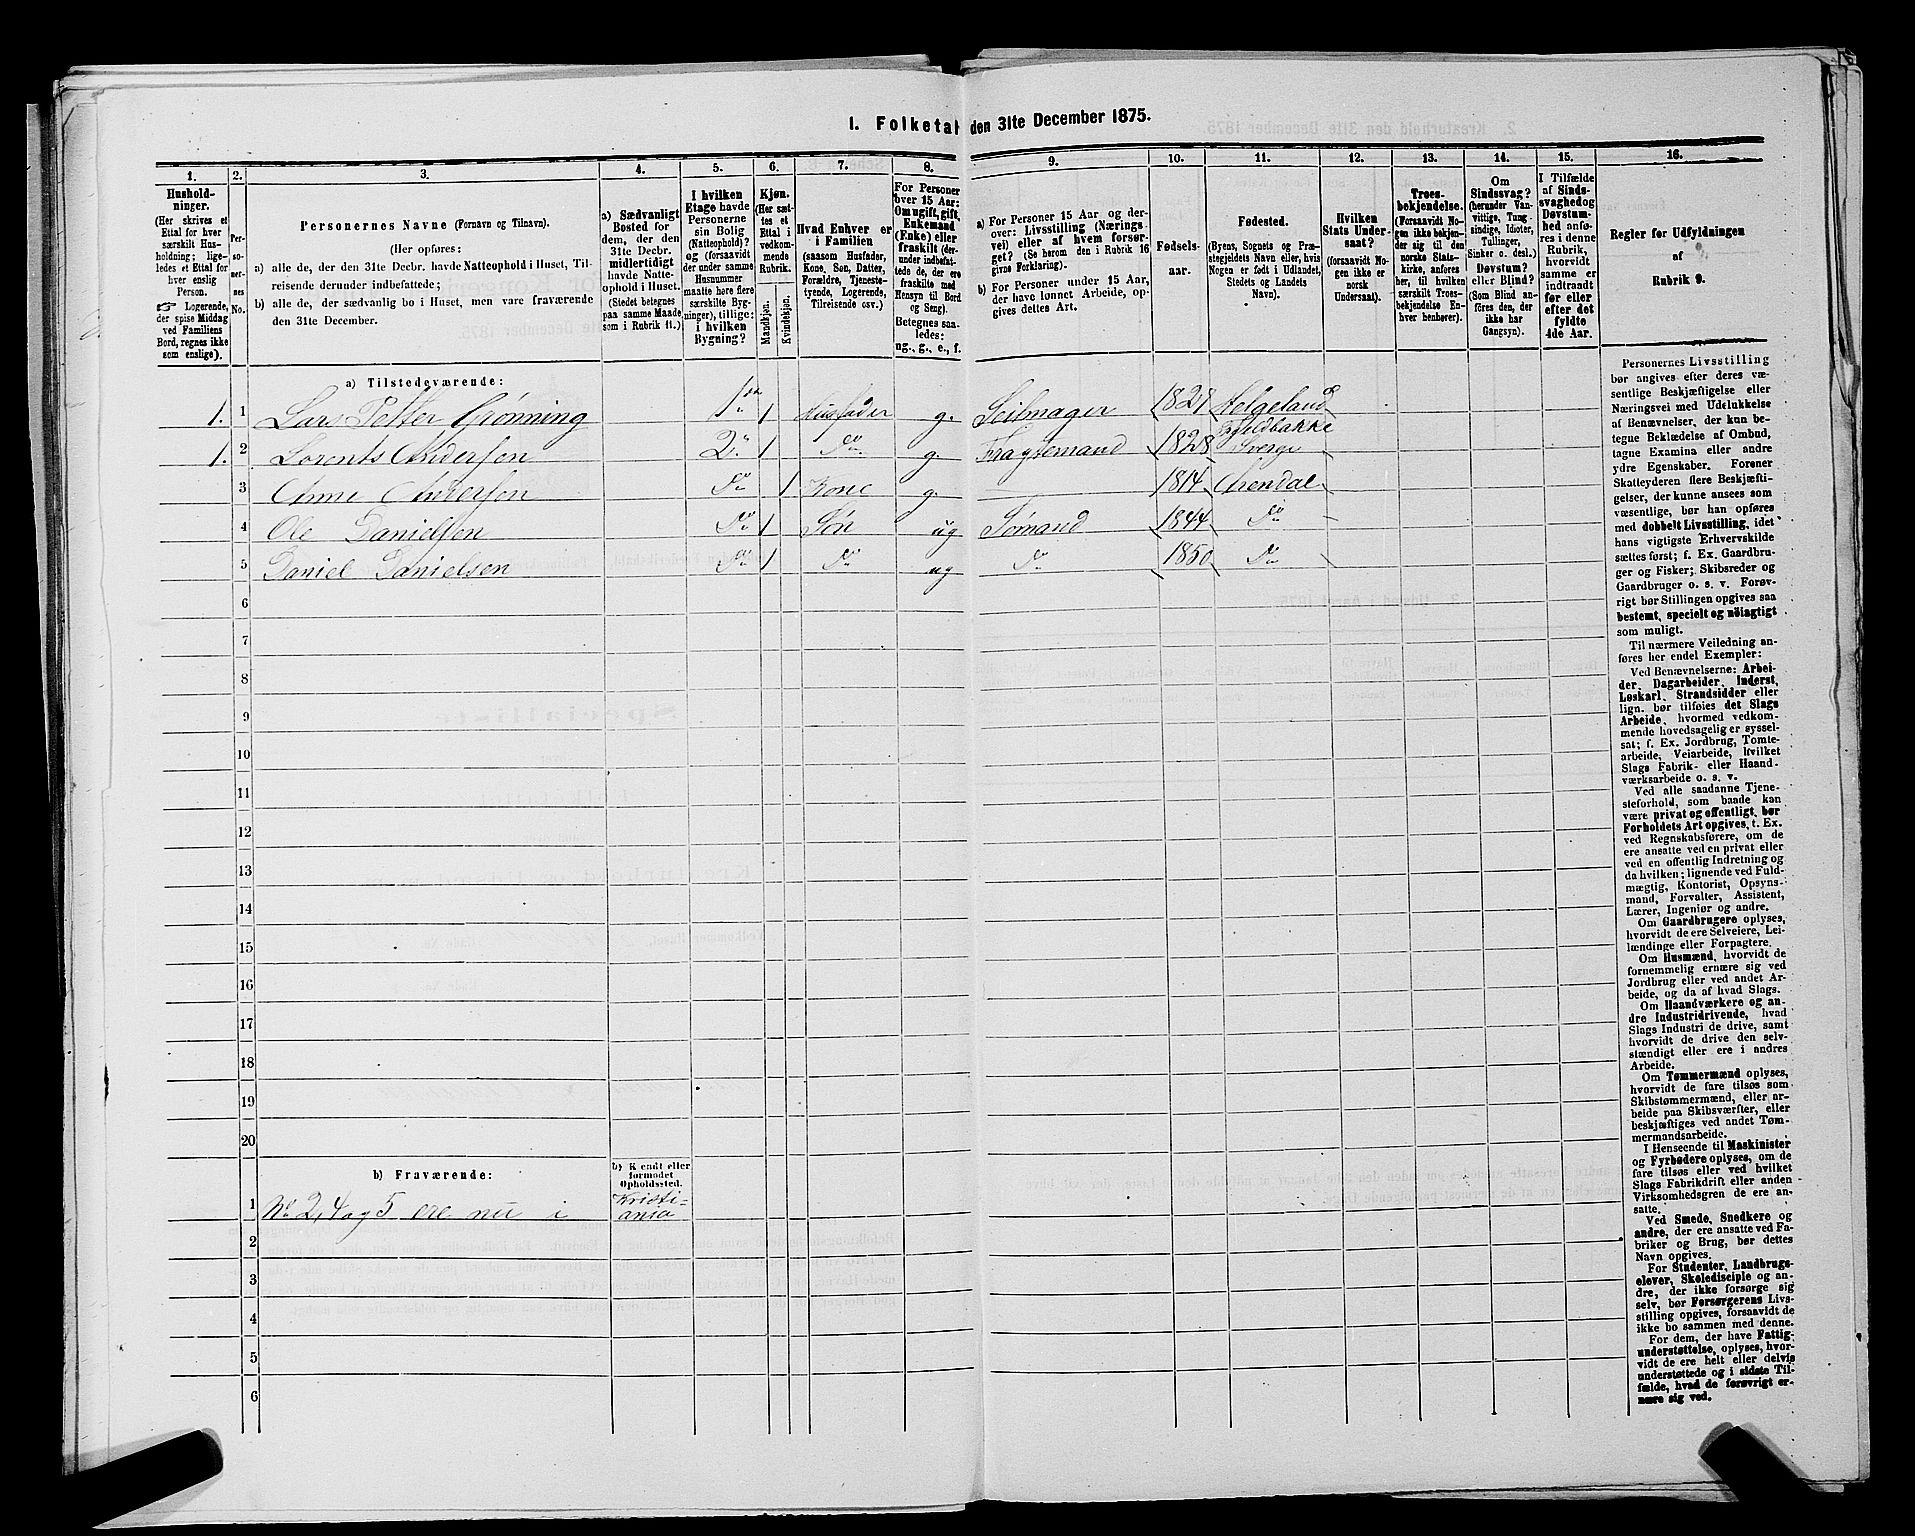 1. Folketal den 31te December 1875.
1. 2. 3. 4. 5. 6. 7. 8. 9. 10. 11. 12. 13. 14. 15. 16.
Husholdninger.
(Her skrives et
Ettal for hver
særskilt Hus-
holdning; lige-
ledes et Ettal for
hver enslig
Person.
Logerende,
der spise Middag
ved Familiens
Bord, regnes ikke
som enslige).
Per-
soner-
nes
No.
Personernes Navne (Fornavn og Tilnavn).
(Her opføres:
a) alle de, der den 31te Decbr. havde Natteophold i Huset, Til-
reisende derunder indbefattede;
b) alle de, der sædvanlig bo i Huset, men vare fraværende
den 31te December.
a) Sædvanligt
Bosted for
dem, der den
31te Decbr.
midlertidigt
havde Natte-
ophold i Huset.
(Stedet betegnes
paa samme Maade
som i Rubrik 11.)
I hvilken
Etage havde
Personerne
sin Bolig
(Natteophold)?
og (forsaavidt
der under samme
Husnummer
maatte høre flere
særskilte Byg-
ninger), tillige:
i hvilken
Bygning?
Kjøn.
(Her sæt-
tes et
Ettal i
vedkom-
mende
Rubrik.
Mandkjøn.
Kvindekjøn.
Hvad Enhver er
i Familien
(saasom Husfader,
Kone, Søn, Datter,
Forældre, Tjeneste-
tyende, Logerende,
Tilreisende osv.).
For Personer
over 15 Aar:
Om ugift, gift,
Enkemand
(Enke) eller
fraskilt (der-
under indbefat-
tede de, der ere
fraskilte med
Hensyn til Bord
og Seng).
Betegnes saa-
ledes:
ug., g., e., f.
a) For Personer 15 Aar og der-
over: Livsstilling (Nærings-
vei) eller af hvem forsør-
get? (Se herom den i Rubrik 16
givne Forklaring).
b) For Personer under 15 Aar,
der have lønnet Arbeide, op-
gives dettes Art.
Fødsels-
aar.
Fødested.
(Byens, Sognets og Præ-
stegjeldets Navn eller, hvis
Nogen er født i Udlandet,
Stedets og Landets
Navn).
Hvilken
Stats Under-
saat?
(forsaavidt No-
gen ikke er
norsk
Undersaat).
Troes-
bekjendelse.
(Forsaavidt No-
gen ikke bekjen-
der sig til den
norske Stats-
kirke, anføres
her, til hvilken
særskilt Troes-
bekjendelse En-
hver henhører).
Om
Sindssvag?
(herunder Van-
vittige, Tung-
sindige, Idioter,
Tullinger,
Sinker o. desl.).
Døvstum?
eller Blind?
(Som Blind an-
føres den, der
ikke har
Gangsyn).
I Tilfælde
af Sinds-
svaghed og
Døvstum-
hed anfø-
res i denne
Rubrik,
hvorvidt
samme er
indtraadt
før eller
efter det
fyldte
4de Aar.
Regler for Udfyldningen
af
Rubrik 9.
a) Tilstedeværende:
1. 1 Lars Petter Grønning 1ste 1 Husfader g. Seilmager 1827 Helgeland
1. 2 Lorents Andersen 2. 1 Do g. Fragtemand 1828 Sverge
3 Anne Andersen Do 1 Kone g. — 1814 Arendal
4 Ole Danielsen Do 1 Søn ug Sømand 1844 Do
5 Daniel Danielsen Do 1 Do ug Do 1850 Do
6
7
8
9
10
11
12
13
14
15
16
17
18
19
20
b) Fraværende:
b) Kendt eller
formodet
Opholdssted.
1 No 2, 4 og 5 ere nu i Kristi-
ania
2
3
4
5
6
Personernes Livsstilling
bør angives efter deres væ-
sentlige Beskjæftigelse eller
Næringsvei med Udelukkelse
af Benævnelser, der kun be-
tegne Beklædelse af Ombud,
tagne Examina eller andre
ydre Egenskaber. Forener
Skatteyderen flere Beskjæfti-
gelser, der kunne ansees som
væsentlige, bør han opføres
med dobbelt Livsstilling, idet
hans vigtigste Erhvervskilde
sættes først; f. Ex. Gaardbru-
ger og Fisker; Skibsreder og
Gaardbruger o. s. v. Forøv-
rigt bør Stillingen opgives saa
bestemt, specielt og nöiagtigt
som muligt.
Til nærmere Veiledning an-
føres her endel Exempler:
Ved Benævnelserne: Arbei-
der, Dagarbeider, Inderst,
Løskarl, Strandsidder eller
lign. bør tilføies det Slags
Arbeide, hvormed vedkom-
mende hovedsagelig er syssel-
sat; f. Ex. Jordbrug, Tomte-
arbeide, Veiarbeide, hvilket
Slags Fabrik- eller Haand-
værksarbeide o. s. v.
Ved alle saadanne Tjene-
steforhold, som baade kan
være privat og offentligt, bør
Forholdets Art opgives, t. Ex.
ved Regnskabsførere, om de
ere ansatte ved en privat eller
ved en offentlig Indretning og
da hvilken; lignende ved Fuld-
mægtig, Kontorist, Opsyns-
mand, Forvalter, Assistent,
Lærer, Ingeniør og andre.
Om Gaardbrugere oplyses,
hvorvidt de ere Selveiere, Lei-
lændinge eller Forpagtere.
Om Husmænd, hvorvidt de
fornemmelig ernære sig ved
Jordbrug eller ved andet Ar-
beide, og da af hvad Slags.
Om Haandværkere og an-
dre Industridrivende, hvad
Slags Industri de drive, samt
hvorvidt de drive den selv-
stændigt eller ere i andres
Arbeide.
Om Tømmermænd oplyses,
hvorvidt de fare tilsøs som
Skibstømmermænd, eller ar-
beide paa Skibsværfter, eller
beskjæftiges ved andet Tøm-
mermandsarbeide.
I Henseende til Maskinister
og Fyrbødere oplyses, om de
fare tilsøs eller ved hvilket
Slags Fabrikdrift eller anden
Virksomhedsgren de ere an-
satte.
Ved Smede, Snedkere og
andre, der ere ansatte ved Fa-
briker og Brug, bør dettes
Navn opgives.
For Studenter, Landbrugs-
elever, Skoledisciple og an-
dre, der ikke forsørge sig
selv, bør Forsørgerens Livs-
stilling opgives, forsaavidt de
ikke bo sammen med denne.
For dem, der have Fattig-
understøttelse, oplyses, hvor-
vidt de ere helt eller delvis
understøttede og i sidste Til-
fælde, hvad de forøvrigt er-
nære sig ved.